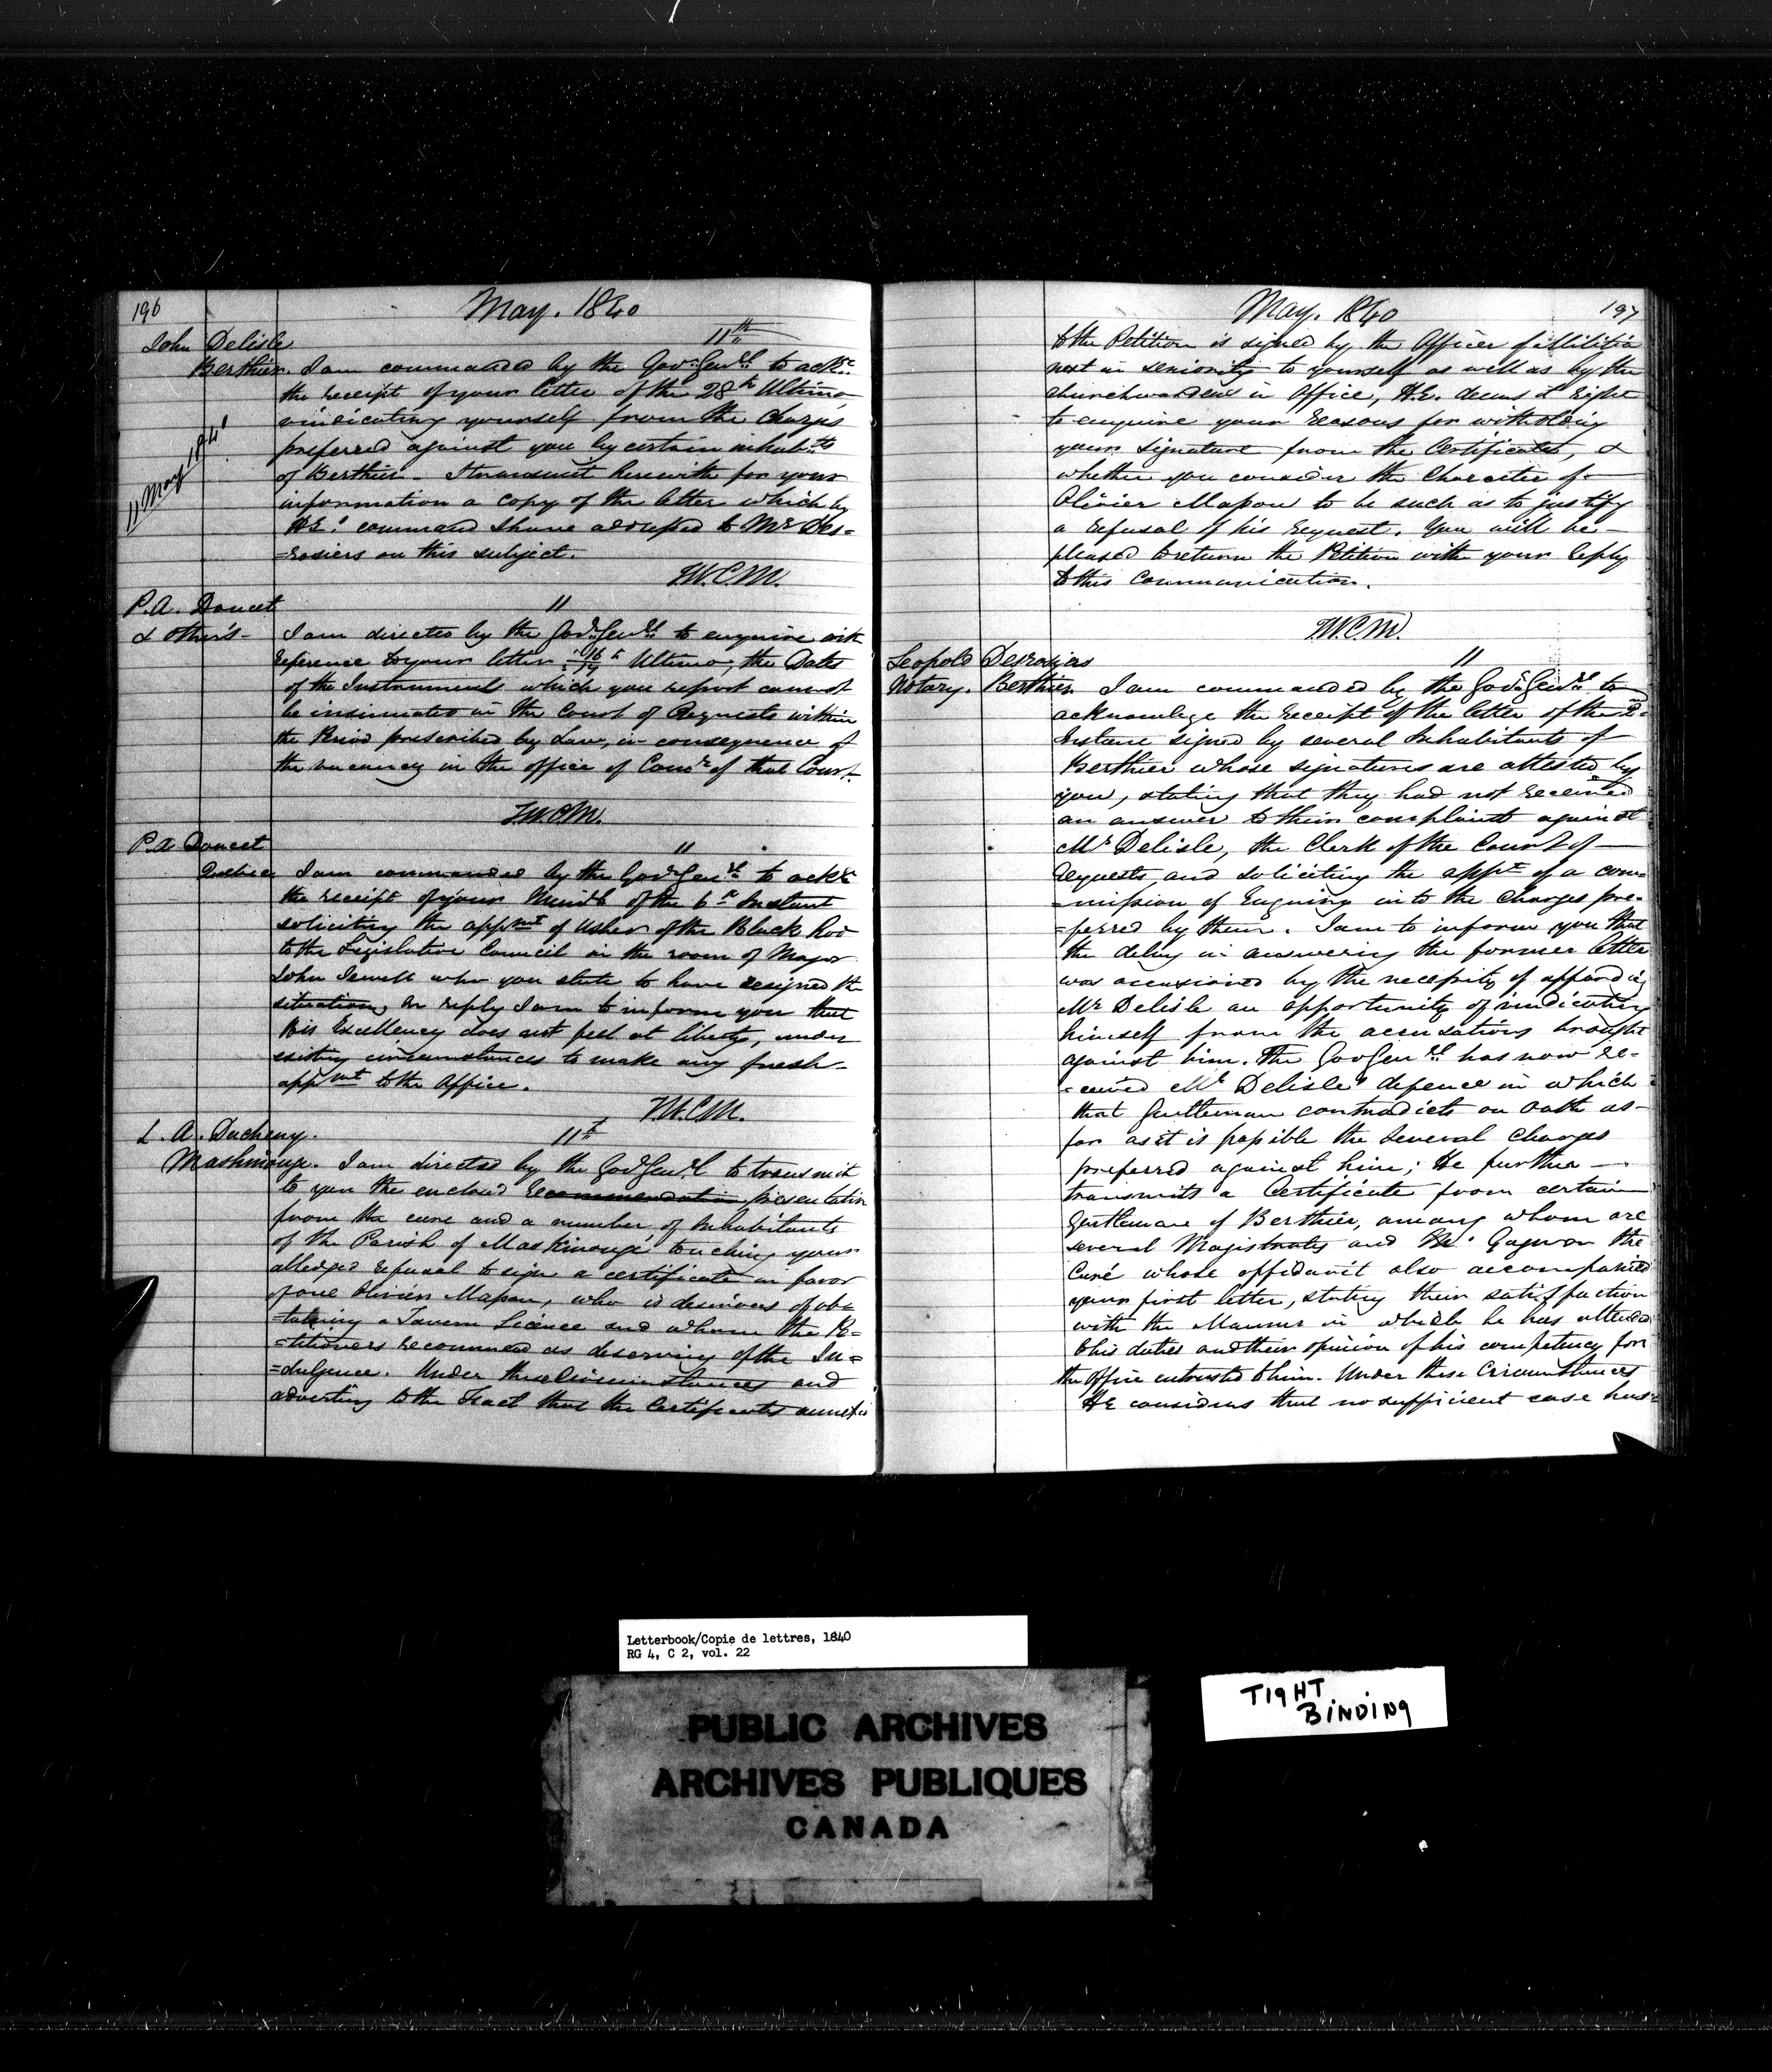 196
May. 1840
John Delisle
11th
Berthier. I am commanded by the Govr Genrl to ackge
the receipt of your letter of the 28th Ultimo,
vindicating yourself from the Charges
preferred against you by certain inhabts
of Berthier - I transmit herewith for your
information a copy of the letter which by
HE's command I have addressed to Mr Des=
=rosiers on this subject.
11 May 1840
T.W.C.M.
P.A. Doucet
"
& others - I am directed by the Govr Genrl to enquire with
reference to your letter of Ultimo, the Dates
of the Instruments which you report cannot
be insinuated in the Court of Requests within
the Period prescribed by Law, in consequence of
the vacancy in the office of Comr of that Court.
T.W.C.M.
P.A Doucet
"
Quebec I am commanded by the Govr Genrl to ackge
the receipt of your Meml of the 6th Instant
soliciting the appmt of Usher of the Black Rod
to the Legislative Council in the room of Major
John Sewell who you state to have resigned the
situation, In reply I am to inform you that
His Excellency does not feel at liberty, under
existing circumstances to make any fresh -
appmt to the Office.
T.W.C.M.
L. A. Ducheny.
11th
Maskinongé. I am directed by the Govr Genrl to transmit
to you the enclosed recommendation presentation
from the cure and a number of Inhabitants
of the Parish of Maskinongé touching your
alledged refusal to sign a certificate in favor
of one Olivier Masson, who is desirous of ob=
=taining a Tavern Licence and whom the Pe=
=titioners recommend as deserving of the In=
=dulgence. Under these Circumstances and
adverting to the Fact that the Certificates annexed
May. 1840
197
to the Petition is signed by the Officer of Militia
next in seniority to yourself as well as by the
churchwardens in Office, H.E. deems it right
to enquire your reasons for witholding
your signature from the Certificates, &
whether you consider the Character of -
Olivier Masson to be such as to justify
a refusal of his request. You will be -
pleased to return the Petition with your reply
to this Communication.
T.W.C.M.
Leopold Desrosiers
"
Notary. Berthier I am commanded by the Govr Genrl to
acknowlege the receipt of the letter of the 2d
Instant signed by several Inhabitants of
Berthier whose signatures are attested by
you, stating that they had not received
an answer to their complaint against
Mr Delisle, the Clerk of the Court of -
requests, and soliciting the appt of a com=
=mission of Enquiry into the Charges pre=
=ferred by them. I am to inform you that
the delay in answering the former letter
was occasioned by the necessity of affording
Mr Delisle an opportunity of vindicating
himself from the accusations brought
against him. The Gov Genrl has now re-
=ceived Mr Delisle's defence in which
that Gentleman contradicts on oath as -
far as it is possible the several Charges
preferred against him; He further -
transmits a Certificate from certain
Gentlemen of Berthier, among whom are
several Magistrates and Mr Gagnon the
Curé whose affidavit also accompanied
your first letter, stating their satisfaction
with the Manner in which he has attended
to his duties and their opinion of his competency for
the Office entrusted to him. Under these Circumstances
HE considers that no sufficient case has=
Letterbook/Copie de lettres, 1840
RG 4, C 2, vol. 22
PUBLIC ARCHIVES
ARCHIVES PUBLIQUES
CANADA
TIGHT
BINDING